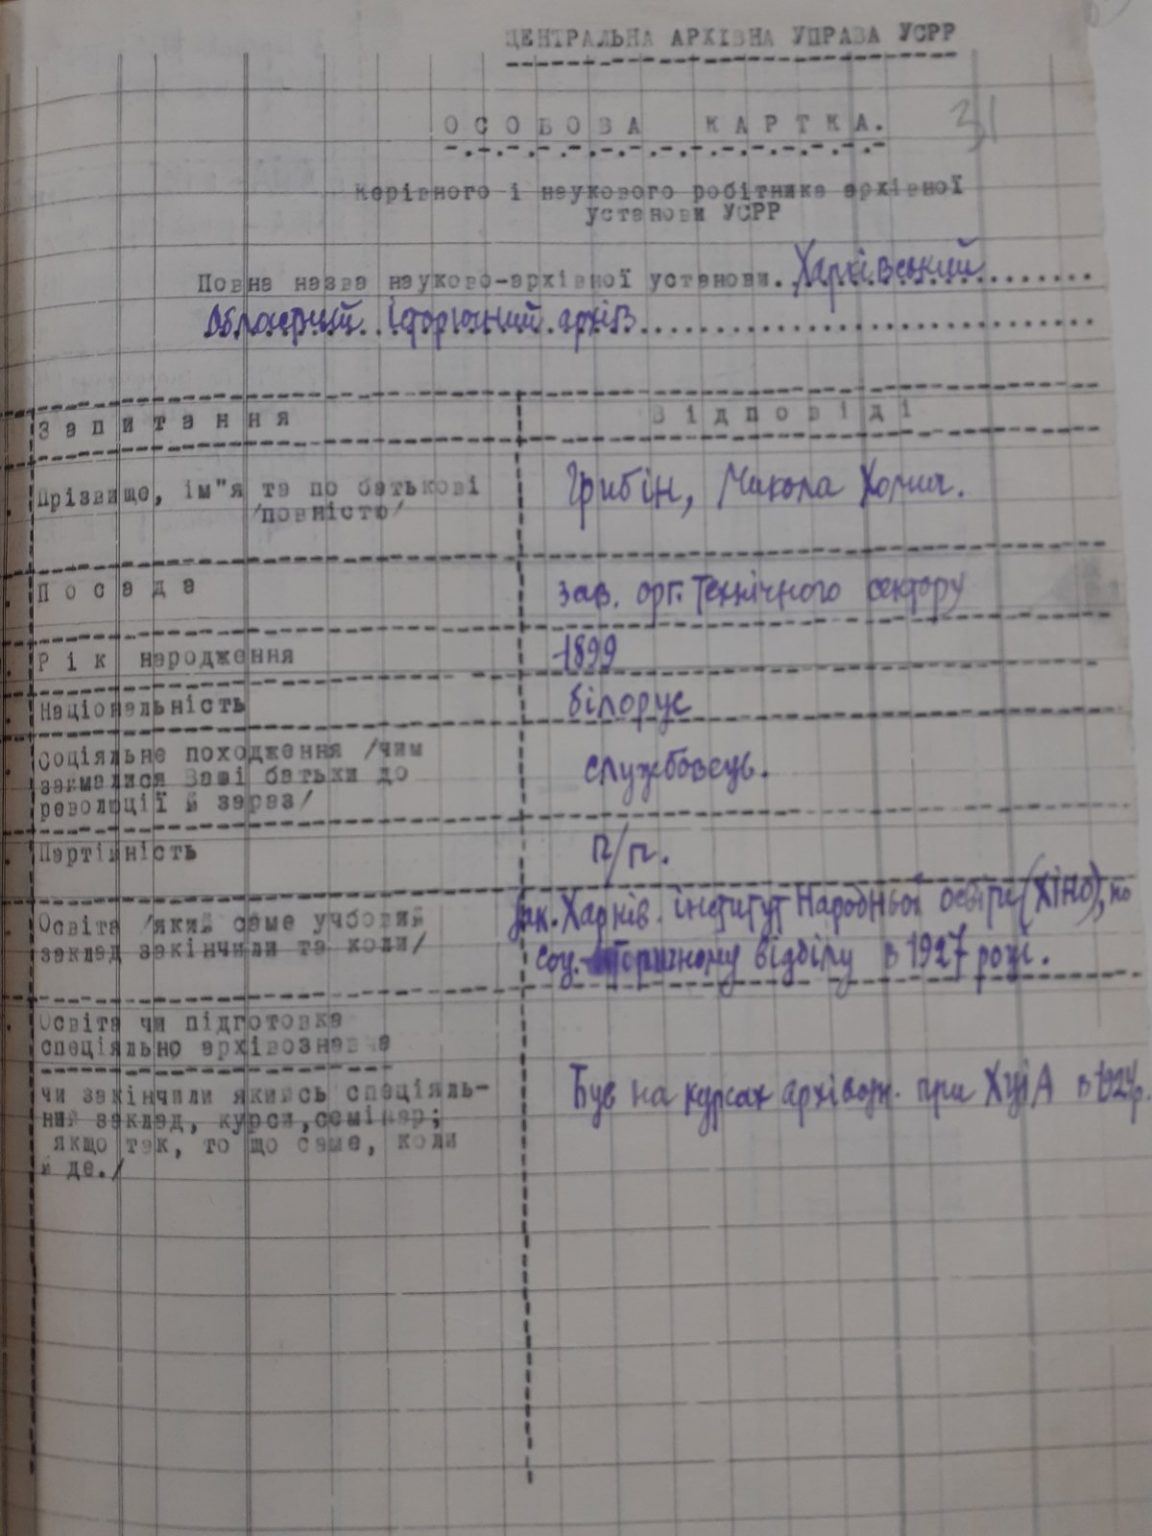 ЦЕНТРАЛЬНА АРХІВНА УПРАВА УСРР
ОСОБОВА КАРТКА.
31
керівного і наукового робітника архівної
установи УСРР
Повна назва науково-архівної установи. Харківський
Обласний історичний архів
Запитання
Відповіді
Прізвище, ім"я та по батькові
/повністю/
Грибін, Микола Хомич.
Посада
зав. орг. технічного сектору
Рік народження
1899
Національність
білорус
Соціяльне походження /чим
займалися Ваші батьки до
революції й зараз/
службовець.
Партійність
п/п.
Освіта /який саме учбовий
заклад закінчили та коли/
зак. Харків. інститут Народньої освіти (ХІНО), по
соц. відбілу в 1927 році.
Освіта чи підготовка
спеціяльно архівознавча
чи закінчили якийсь спеціяль-
ний заклад, курси, семінар;
якщо так, то що саме, коли
й де./
Був на курсах архівозн. при в 1924р.